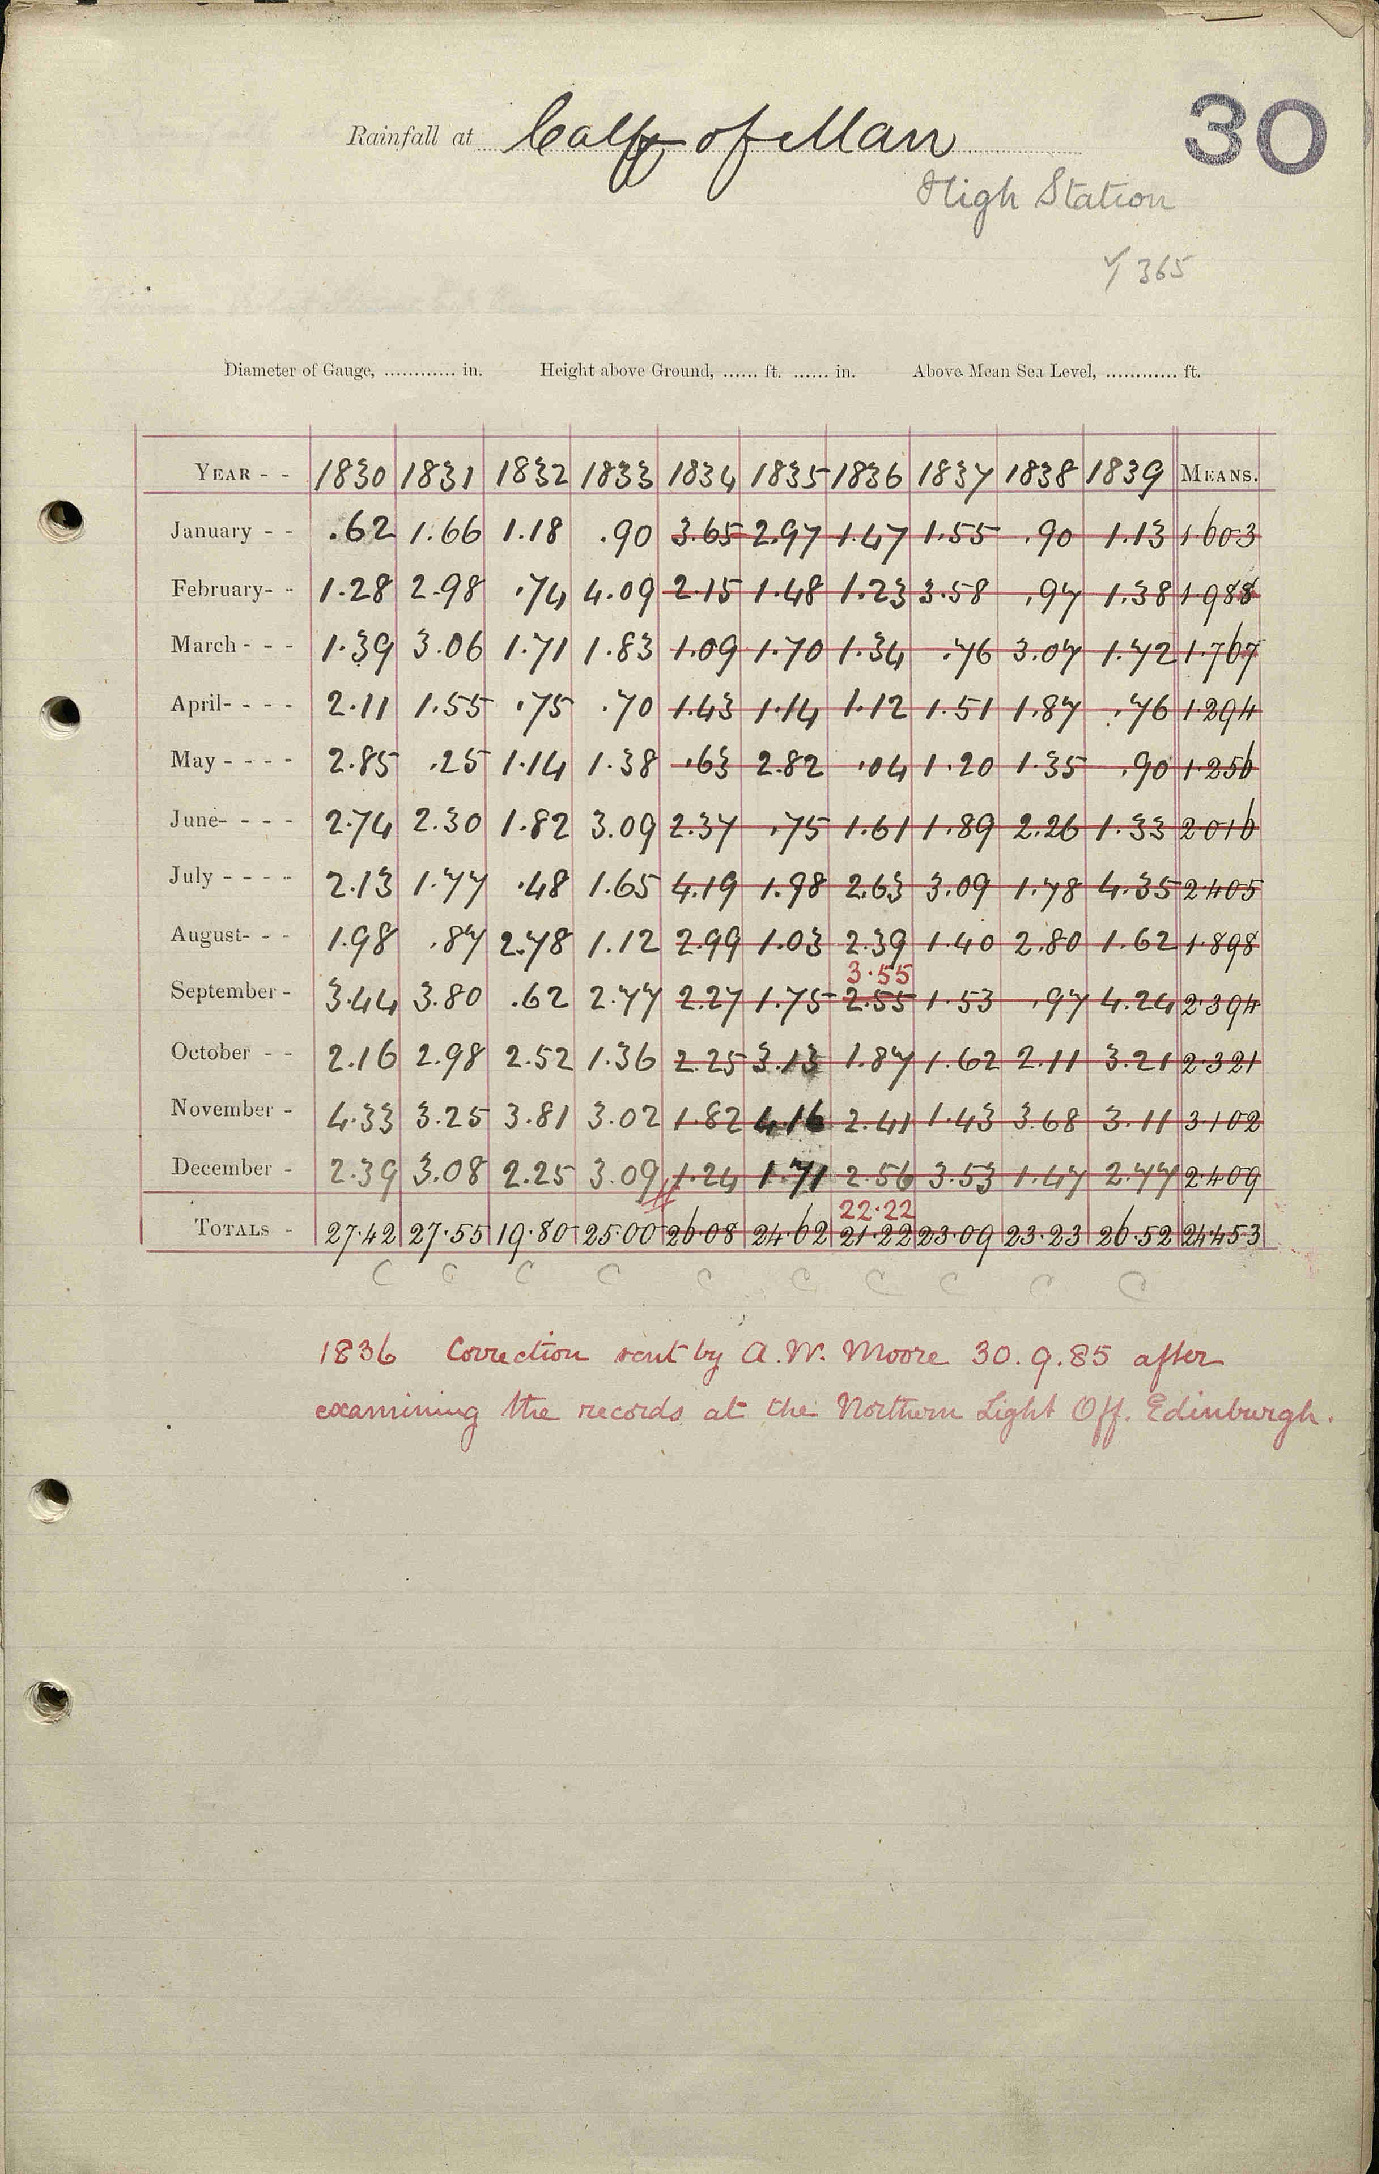 30
Rainfall at Calf of Man
High Station
365
Diameter of Gauge, ............ in. Height above Ground, ...... ft. ...... in. Above Mean Sea Level, ............ ft.
YEAR - - 1830 1831 1832 1833 1834 1835 1836 1837 1838 1839 MEANS.
January - - .62 1.66 1.18 .90 3.65 2.97 1.47 1.55 .90 1.13 1.603
February- - 1.28 2.98 .74 4.09 2.15 1.48 1.23 3.58 .97 1.38 1.988
March - - - 1.39 3.06 1.71 1.83 1.09 1.70 1.34 .76 3.07 1.72 1.767
April- - - - 2.11 1.55 .75 .70 1.43 1.14 1.12 1.51 1.87 .76 1.294
May - - - - 2.85 .25 1.14 1.38 .63 2.82 .04 1.20 1.35 .90 1.256
June- - - - 2.74 2.30 1.82 3.09 2.37 .75 1.61 1.89 2.26 1.33 2.016
July - - - - 2.13 1.77 .48 1.65 4.19 1.98 2.63 3.09 1.78 4.35 2.405
August- - - 1.98 .87 2.78 1.12 2.99 1.03 2.39 1.40 2.80 1.62 1.898
3.55
September - 3.44 3.80 .62 2.77 2.27 1.75 2.55 1.53 .97 4.24 2.394
October - - 2.16 2.98 2.52 1.36 2.25 3.13 1.87 1.62 2.11 3.21 2.321
November - 4.33 3.25 3.81 3.02 1.82 4.16 2.41 1.43 3.68 3.11 3.102
December - 2.39 3.08 2.25 3.09 1.24 1.71 2.56 3.53 1.47 2.77 2.409
22.22
TOTALS - 27.42 27.55 19.80 25.00 26.08 24.62 21.22 23.09 23.23 26.52 24.453
C C C C C C C C C C
1836 Correction sent by A.W. Moore 30.9.85 after
examining the records at the Northern Light Off. Edinburgh.